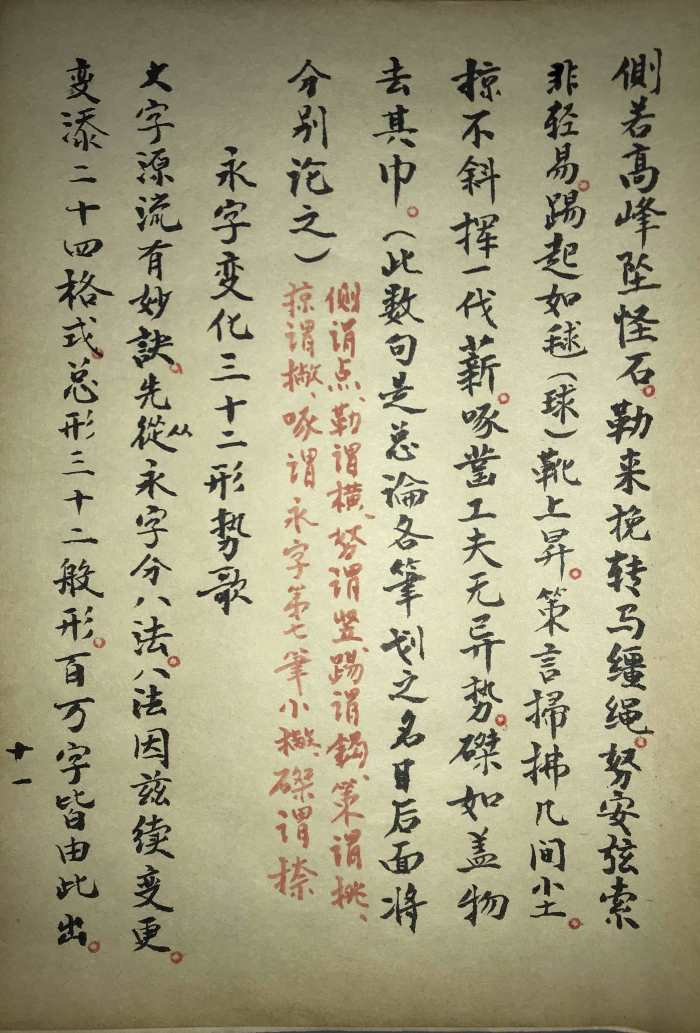 侧若高峰坠怪石。勒来挽转马缰绳。努安弦索
非轻易。踢起如毬（球）靴上昇。策言掃拂几间尘。
掠不斜挥一代薪。啄凿工夫无异势。磔如盖物
去其巾。（此数句是总論各筆划之名目后面将
分别论之）
侧谓点、勒谓横、努谓竖、踢谓鈎、策谓挑、
掠谓撇、啄谓永字第七筆小撇、磔谓捺
永字变化三十二形势歌
大字源流有妙訣。先從从永字分八法。八法因兹续变更。
变添二十四格式。总形三十二般形。百万字皆由此出。
十一